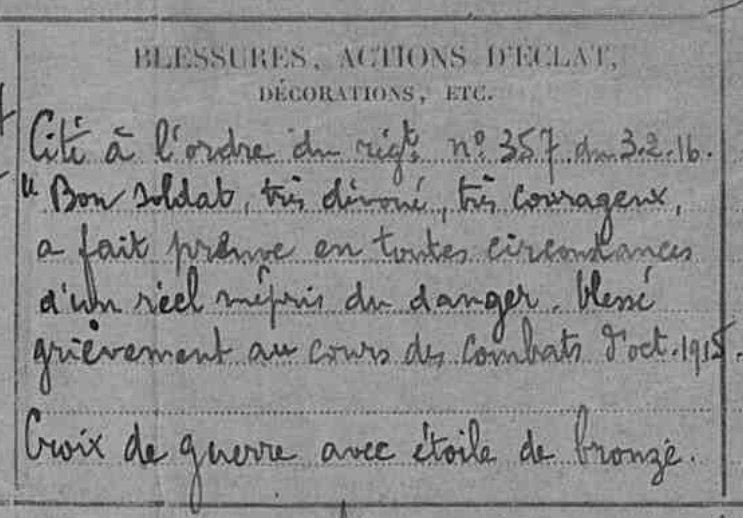 BLESSURES, ACTIONS D'ÉCLAT,
DÉCORATIONS, ETC.
Cité à l'ordre du régt. nº 357 du 3.2.16.
"Bon soldat, très dévoué, très courageux,
a fait preuve en toutes circonstances
d'un réel mépris du danger. blessé
grièvement au cours des combats d'oct. 1915.
Croix de guerre avec étoile de bronze.